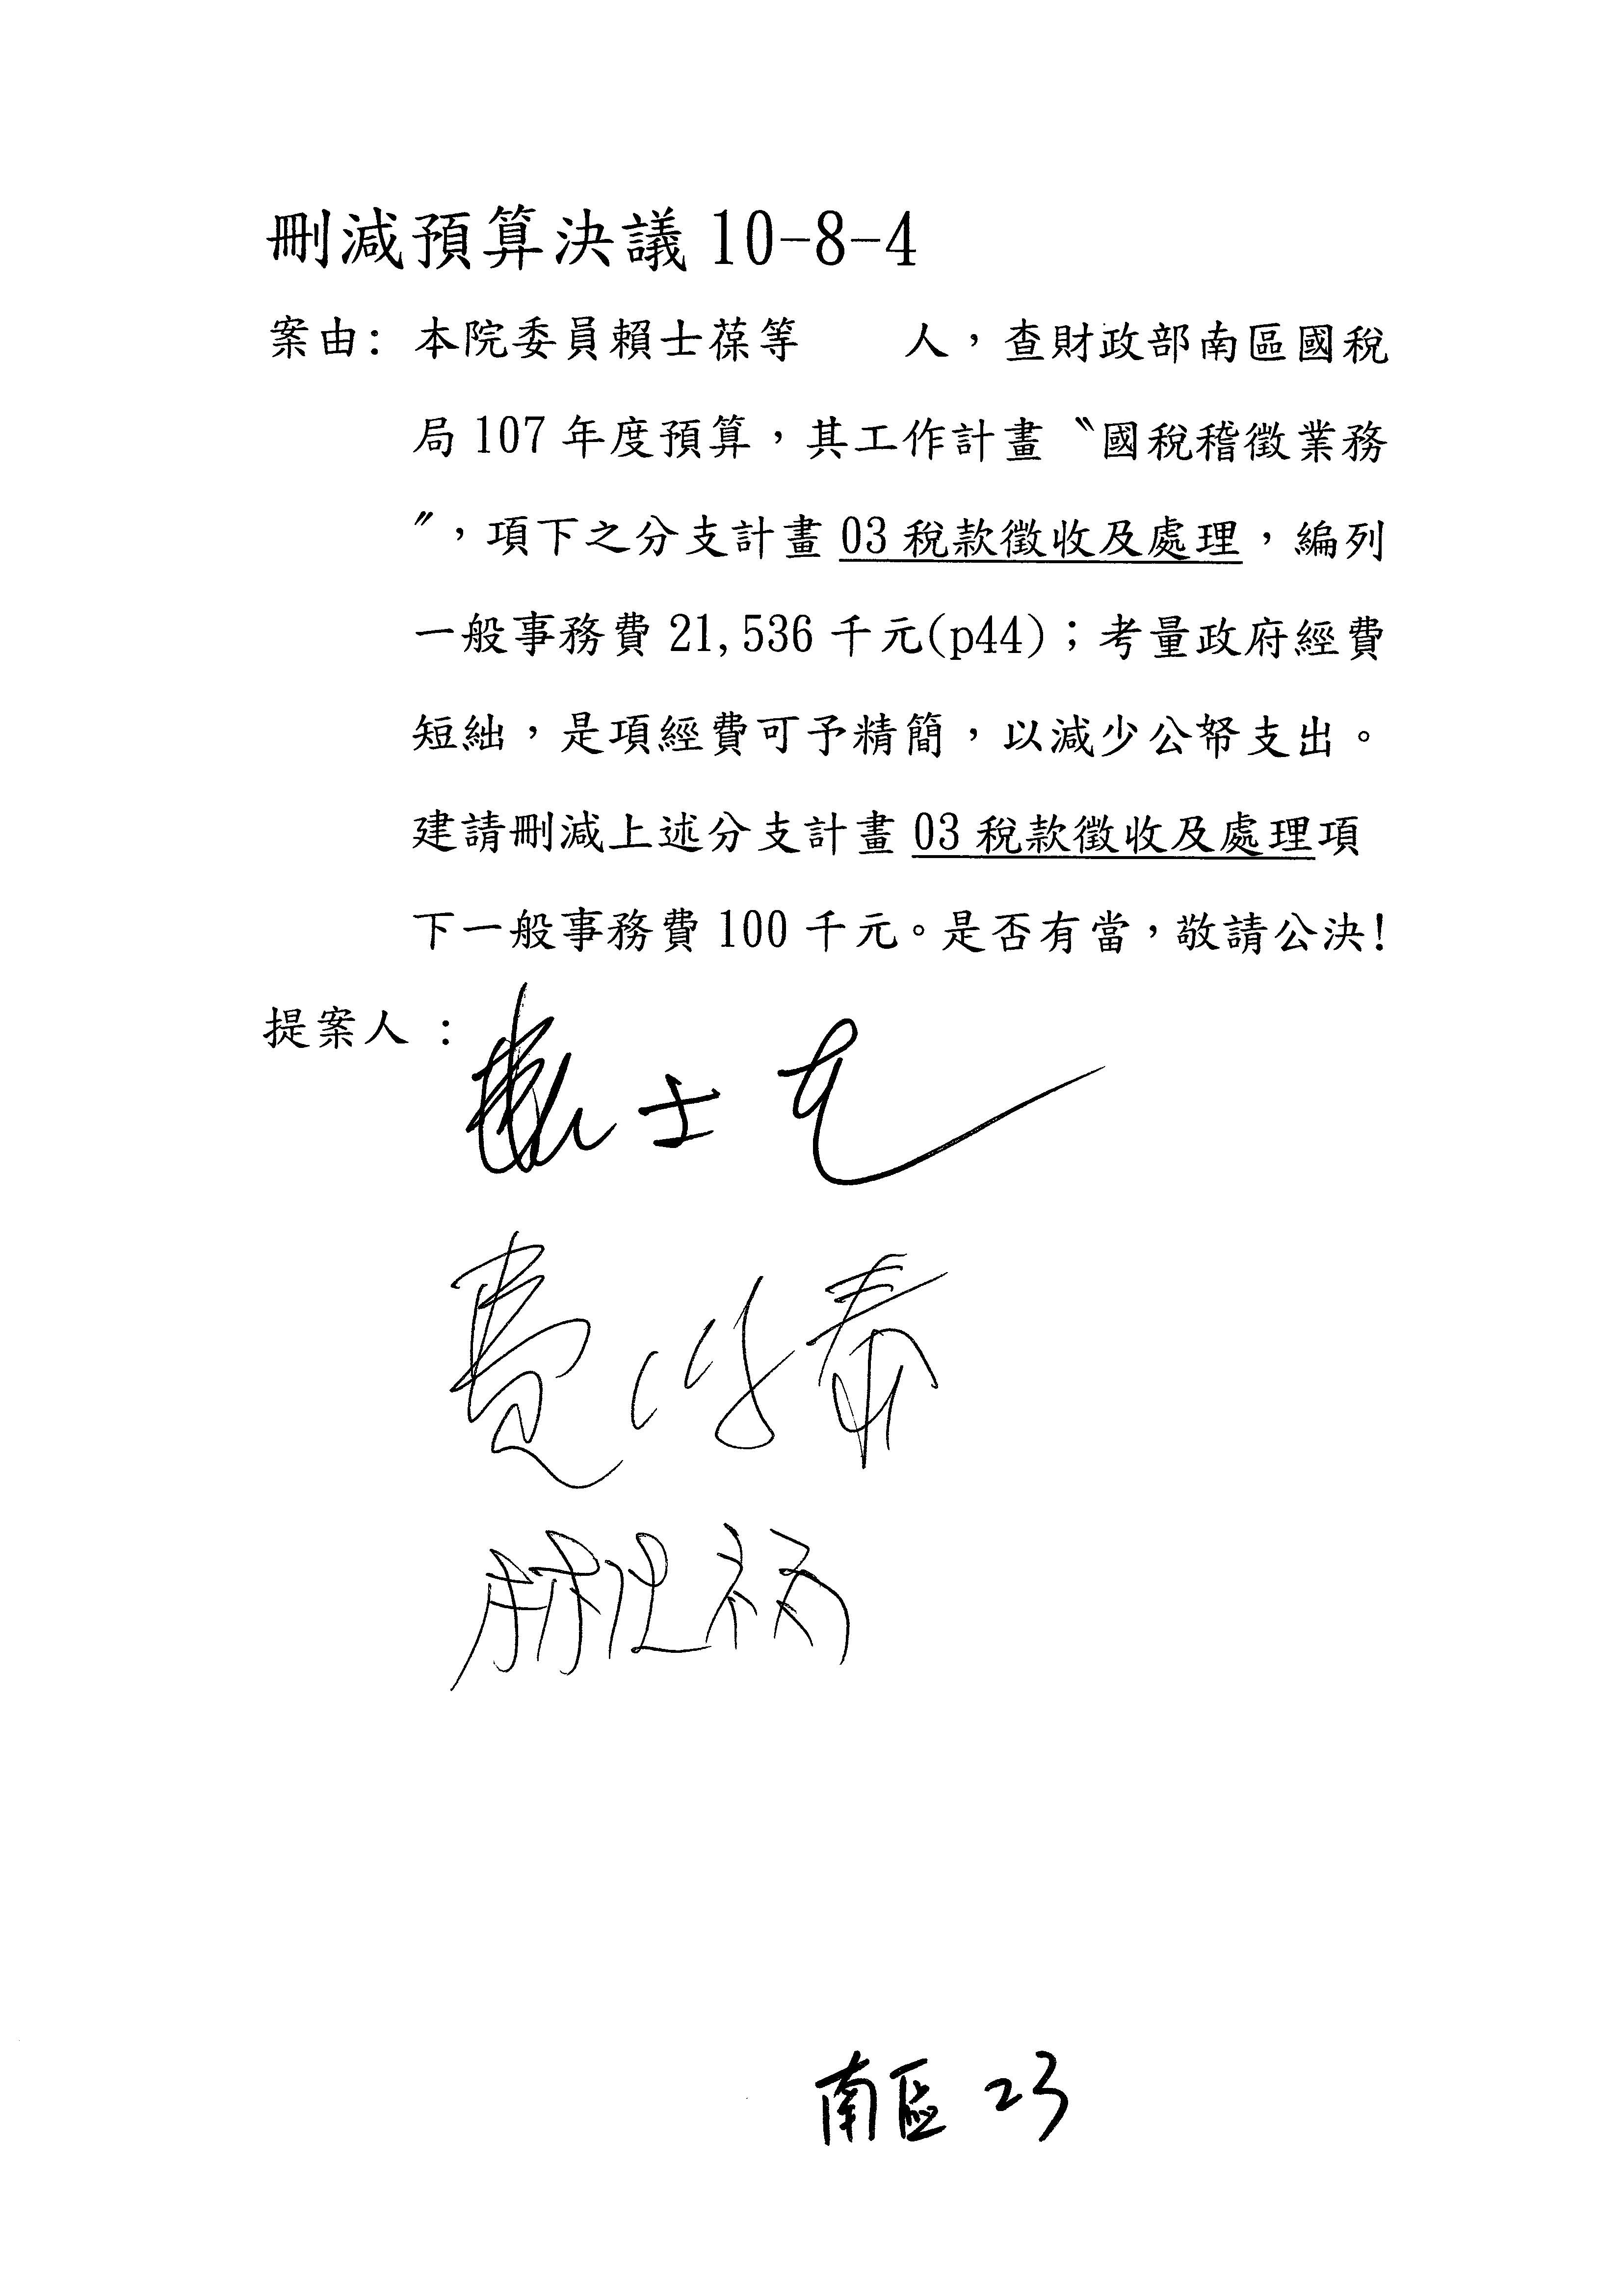 刪減預算決議 10-8-4
案由: 本院委員賴士葆等　　人，查財政部南區國稅
局 107 年度預算，其工作計畫〝國稅稽徵業務
〞，項下之分支計畫 03 稅款徵收及處理，編列
一般事務費 21,536 千元(p44)；考量政府經費
短絀，是項經費可予精簡，以減少公帑支出。
建請刪減上述分支計畫 03 稅款徵收及處理項
下一般事務費 100 千元。是否有當，敬請公決!
提案人 :
賴士葆
費鴻泰
南區 23